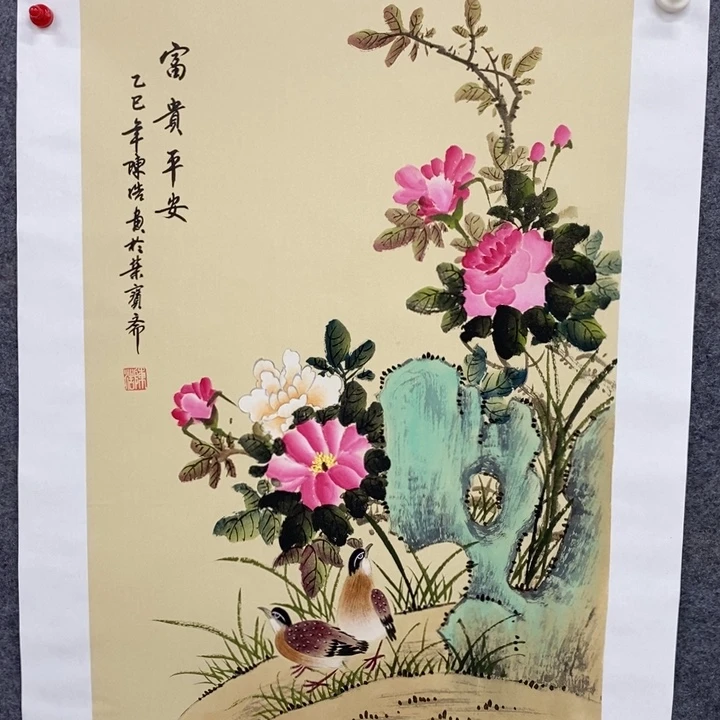 富貴平安
乙巳年陳浩畫於榮寶齋